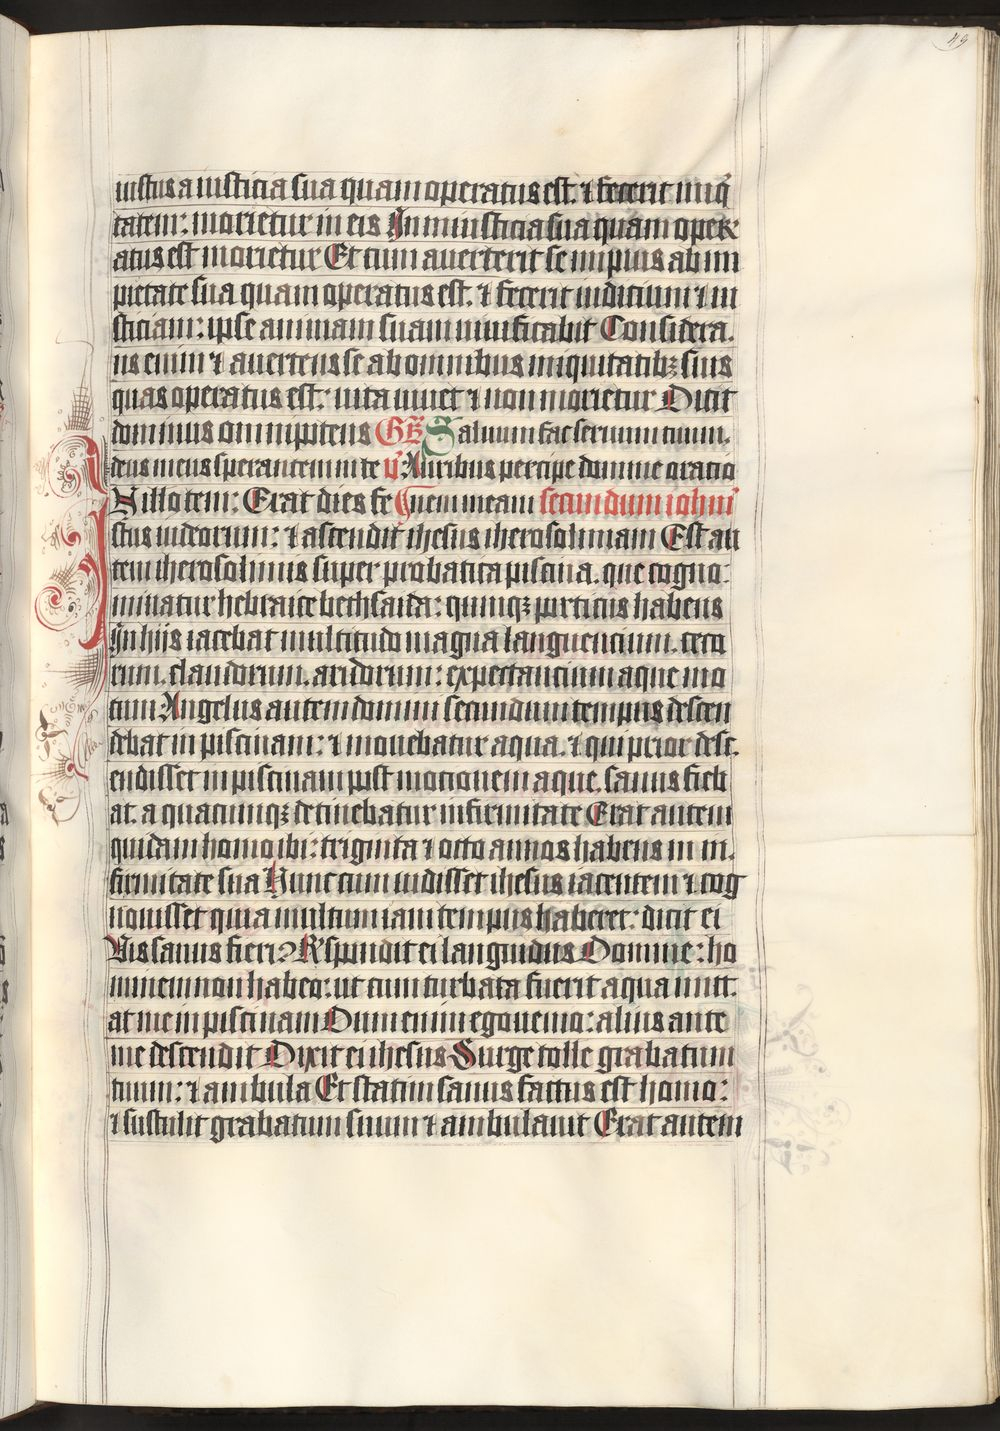 49
iustus a iusticia sua quam operatus est. ⁊ fecerit iniq̄
tatem: morietur in eis In iniusticia sua quam oper
atus est morietur Et cum auerterit se impius ab im
pietate sua quam operatus est. ⁊ fecerit iudicium ⁊ iu
sticiam: ipse animam suam uiuificabit Considera.
ns enim ⁊ auertens se ab omnibus iniquitatibꝫ suis
quas operatus est: uita uiuet ⁊ non morietur Dicit
dominus omnipotens Gr̄ Saluum fac seruum tuum.
deus meus sperantem in te v̄ Auribus percipe domine oratio
In illo tem: Erat dies fe nem meam secundum iohm̄
stus iudeorum: ⁊ ascendit ihesus iherosolimam Est au
tem iherosolimis super probatica piscina. que cogno:
minatur hebraice bethsaida: quinqꝫ porticus habens
In hijs iacebat multitudo magna languencium. ceco
rum. claudorum. aridorum: expectancium aque mo
tum Angelus autem domini secundum tempus descen
debat in piscinam: ⁊ mouebatur aqua. ⁊ qui prior desc.
endisset in piscinam post motionem aque. sanus fieb
at. a quacumqꝫ detinebatur infirmitate Erat autem
quidam homo ibi: triginta ⁊ octo annos habens in in.
firmitate sua Hunc cum uidisset ihesus iacentem ⁊ cog
nouisset quia multum iam tempus haberet: dicit ei
Vis sanus fieri? R̄spondit ei languidus Domine: ho
minem non habeo: ut cum turbata fuerit aqua mitt.
at me in piscinam Dum enim ego uenio: alius ante
me descendit Dixit ei ihesus Surge tolle grabatum
tuum: ⁊ ambula Et statim sanus factus est homo:
⁊ sustulit grabatum suum ⁊ ambulauit Erat autem